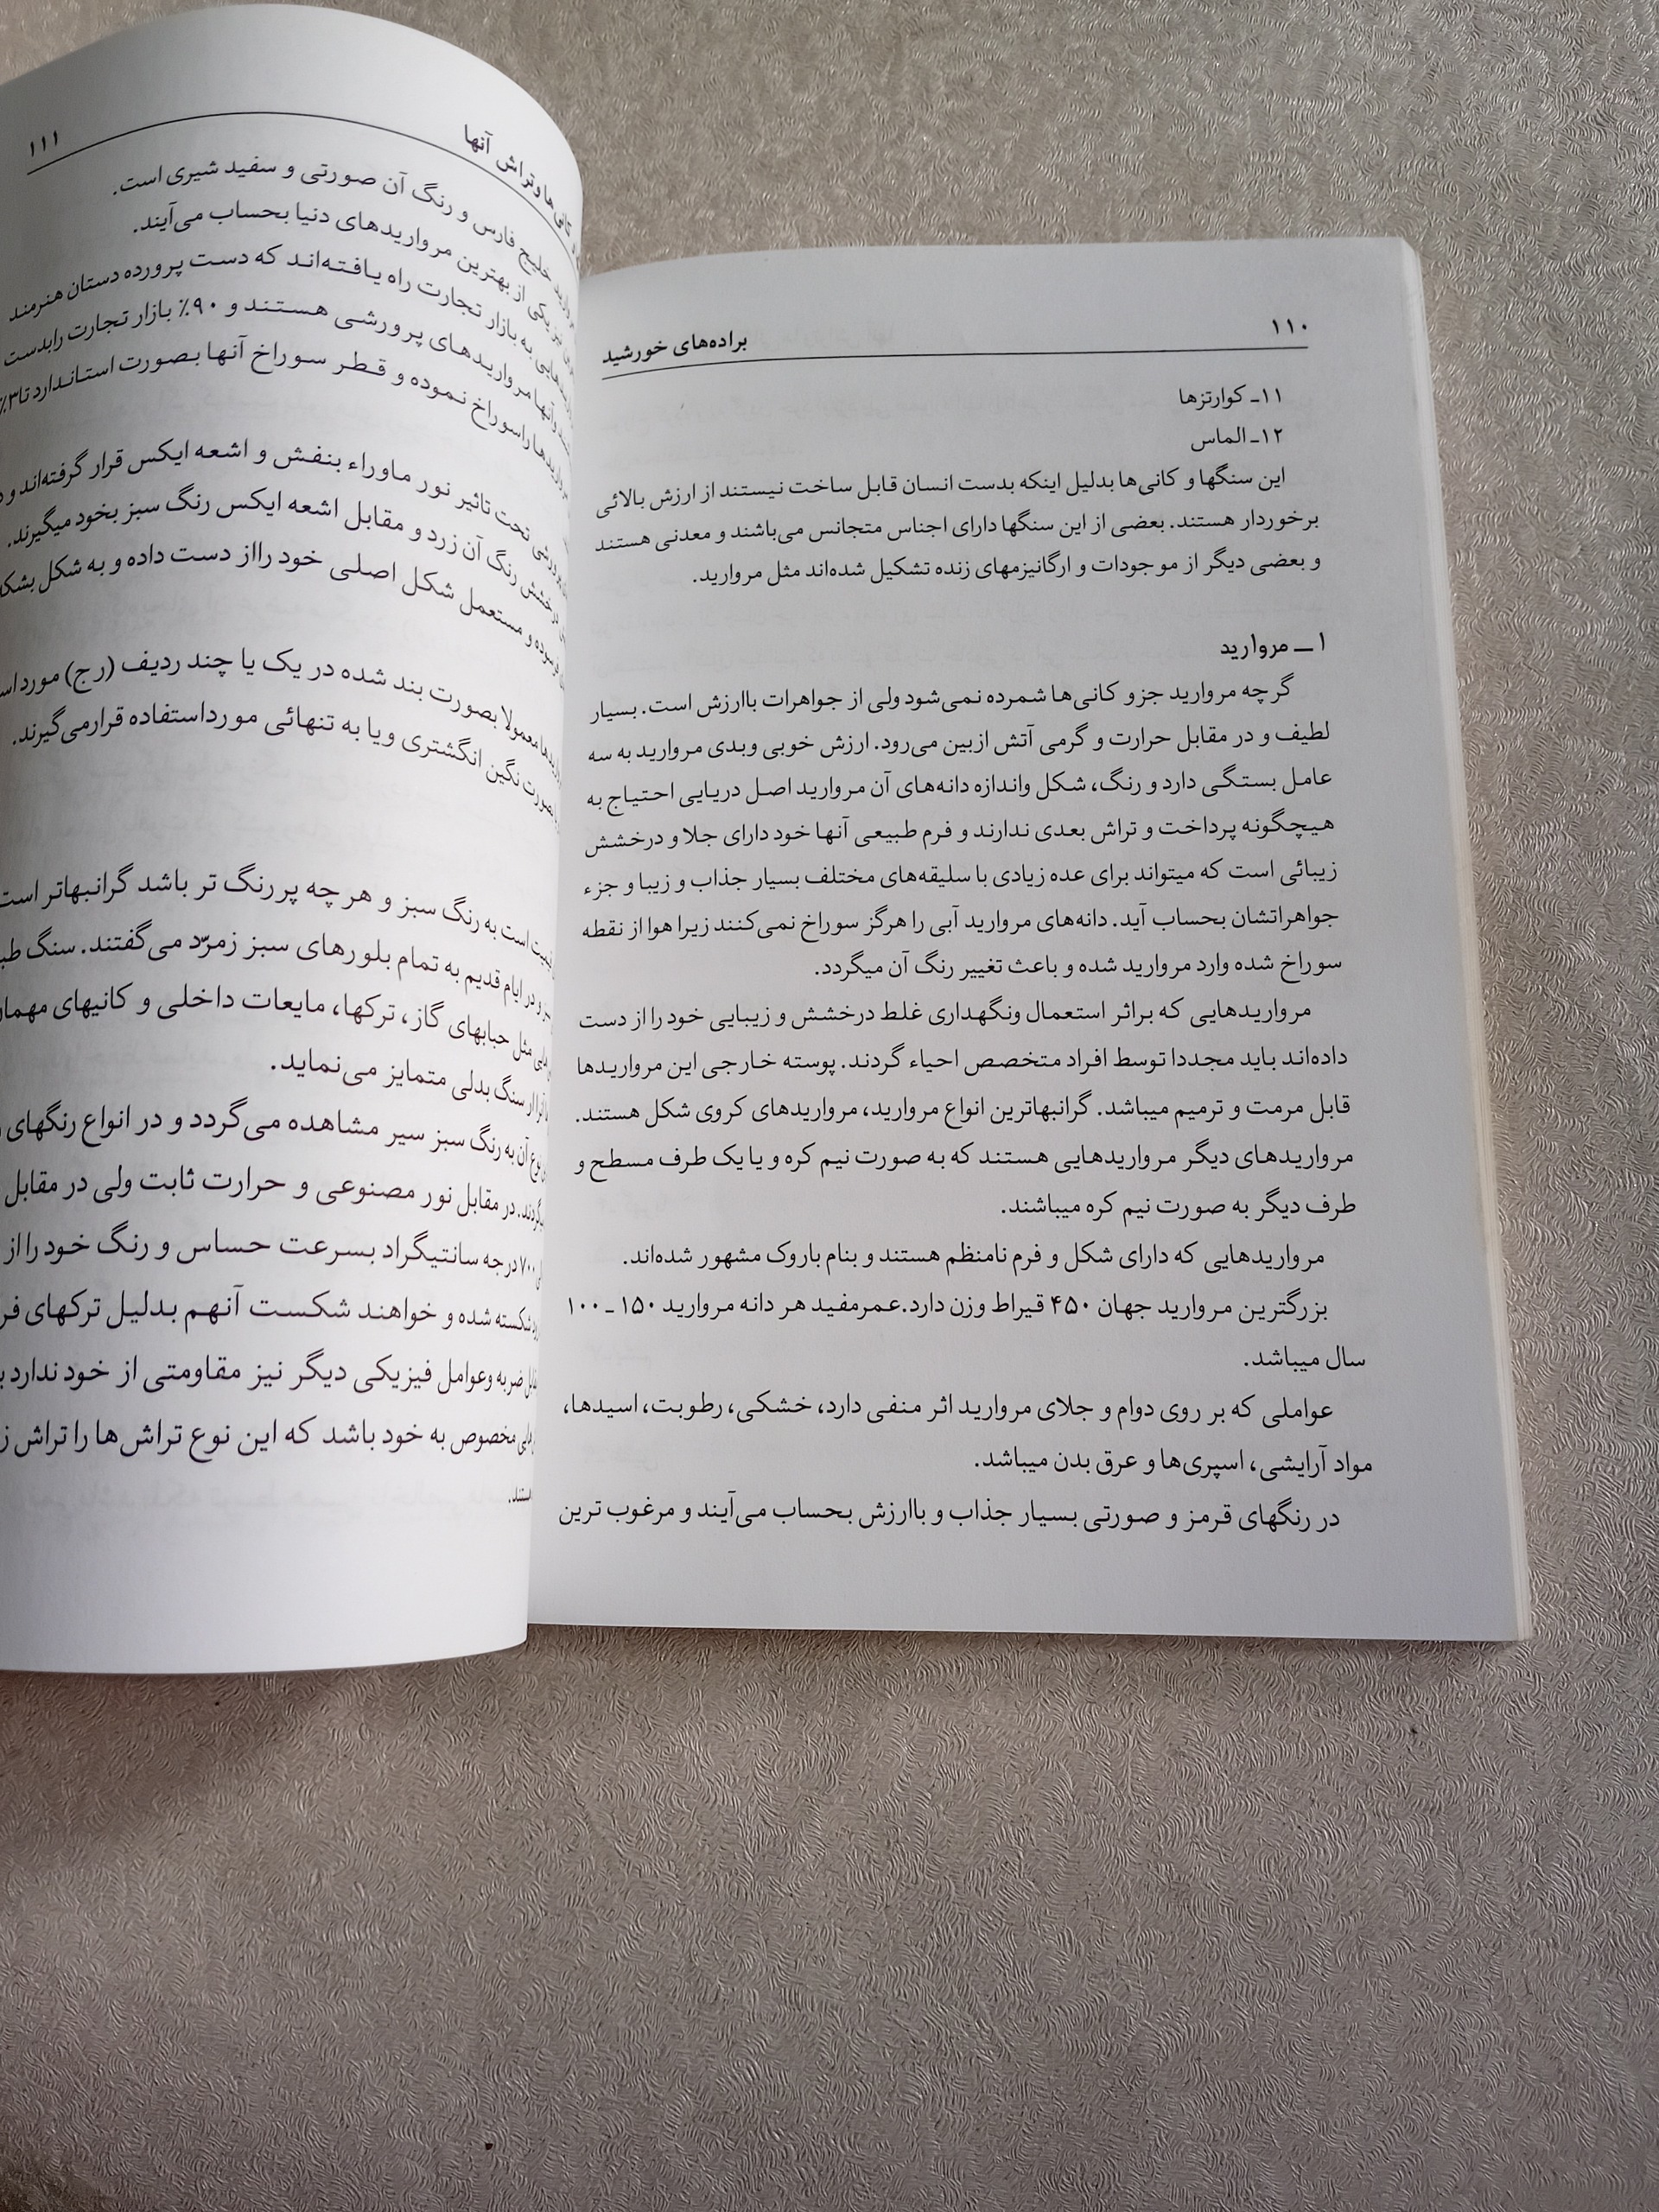 ۱۱۰
براده‌های خورشید
۱۱ـ کوارتزها
۱۲ـ الماس
این سنگها و کانی‌ها بدلیل اینکه بدست انسان قابل ساخت نیستند از ارزش بالائی
برخوردار هستند. بعضی از این سنگها دارای اجناس متجانس می‌باشند و معدنی هستند
و بعضی دیگر از موجودات و ارگانیزمهای زنده تشکیل شده‌اند مثل مروارید.
۱ ــ مروارید
گرچه مروارید جزو کانی‌ها شمرده نمی‌شود ولی از جواهرات باارزش است. بسیار
لطیف و در مقابل حرارت و گرمی آتش ازبین می‌رود. ارزش خوبی وبدی مروارید به سه
عامل بستگی دارد و رنگ، شکل واندازه دانه‌های آن مروارید اصل دریایی احتیاج به
هیچگونه پرداخت و تراش بعدی ندارند و فرم طبیعی آنها خود دارای جلا و درخشش
زیبائی است که میتواند برای عده زیادی با سلیقه‌های مختلف بسیار جذاب و زیبا و جزء
جواهراتشان بحساب آید. دانه‌های مروارید آبی را هرگز سوراخ نمی‌کنند زیرا هوا از نقطه
سوراخ شده وارد مروارید شده و باعث تغییر رنگ آن میگردد.
مرواریدهایی که براثر استعمال ونگهداری غلط درخشش و زیبایی خود را از دست
داده‌اند باید مجددا توسط افراد متخصص احیاء گردند. پوسته خارجی این مرواریدها
قابل مرمت و ترمیم میباشد. گرانبهاترین انواع مروارید، مرواریدهای کروی شکل هستند.
مرواریدهای دیگر مرواریدهایی هستند که به صورت نیم کره و یا یک طرف مسطح و
طرف دیگر به صورت نیم کره میباشند.
مرواریدهایی که دارای شکل و فرم نامنظم هستند و بنام باروک مشهور شده‌اند.
بزرگترین مروارید جهان ۴۵۰ قیراط وزن دارد.عمرمفید هر دانه مروارید ۱۵۰ ـ ۱۰۰
سال میباشد.
عواملی که بر روی دوام و جلای مروارید اثر منفی دارد، خشکی، رطوبت، اسیدها،
مواد آرایشی، اسپری‌ها و عرق بدن میباشد.
در رنگهای قرمز و صورتی بسیار جذاب و باارزش بحساب می‌آیند و مرغوب ترین
تراش آنها
۱۱۱
خلیج فارس و رنگ آن صورتی و سفید شیری است.
یکی از بهترین مرواریدهای دنیا بحساب می‌آیند.
به بازار تجارت راه یافته‌اند که دست پرورده دستان هنرمند
آنها مرواریدهای پرورشی هستند و ۹۰٪ بازار تجارت رابدست
راسوراخ نموده و قطر سوراخ آنها بصورت استاندارد تا۳٪
تحت تاثیر نور ماوراء بنفش و اشعه ایکس قرار گرفته‌اند و
درخشش رنگ آن زرد و مقابل اشعه ایکس رنگ سبز بخود میگیرند.
و مستعمل شکل اصلی خود رااز دست داده و به شکل
معمولا بصورت بند شده در یک یا چند ردیف (رج)
بصورت نگین انگشتری ویا به تنهائی مورداستفاده قرارمی‌گیرند.
است به رنگ سبز و هر چه پررنگ تر باشد گرانبهاتر است
و در ایام قدیم به تمام بلورهای سبز زمرّد می‌گفتند. سنگ
مثل حبابهای گاز، ترکها، مایعات داخلی و کانیهای
سنگ بدلی متمایز می‌نماید.
نوع آن به رنگ سبز سیر مشاهده می‌گردد و در انواع رنگهای
در مقابل نور مصنوعی و حرارت ثابت ولی در مقابل
۷۰۰ درجه سانتیگراد بسرعت حساس و رنگ خود را از
شکسته شده و خواهند شکست آنهم بدلیل ترکهای
ضربه وعوامل فیزیکی دیگر نیز مقاومتی از خود ندارد
مخصوص به خود باشد که این نوع تراش‌ها را تراش